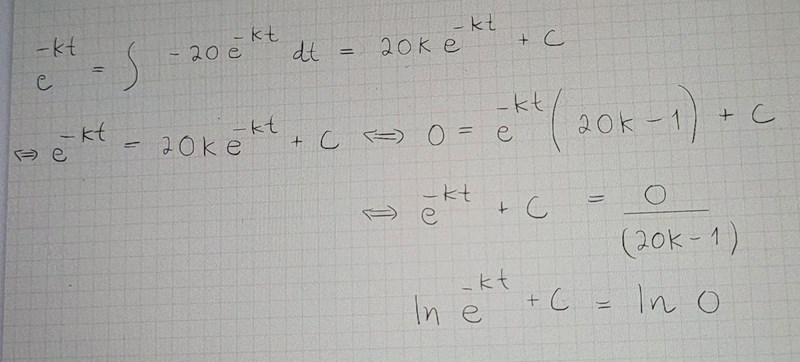 e^{-kt} = ∫ -20 e^{-kt} dt = 20k e^{-kt} + C
⇔ e^{-kt} = 20k e^{-kt} + C ⇔ 0 = e^{-kt} (20k - 1) + C
⇔ e^{-kt} + C = \frac{0}{(20k - 1)}
ln e^{-kt} + C = ln 0